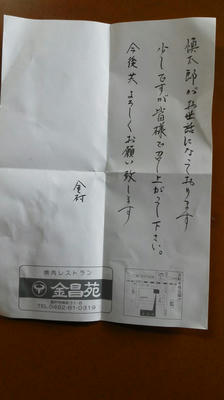 慎太郎がお世話になっております
少しですが皆様で召し上がって下さい。
今後共よろしくお願い致します
金村
焼肉レストラン
金昌苑
TEL.0482-61-0319